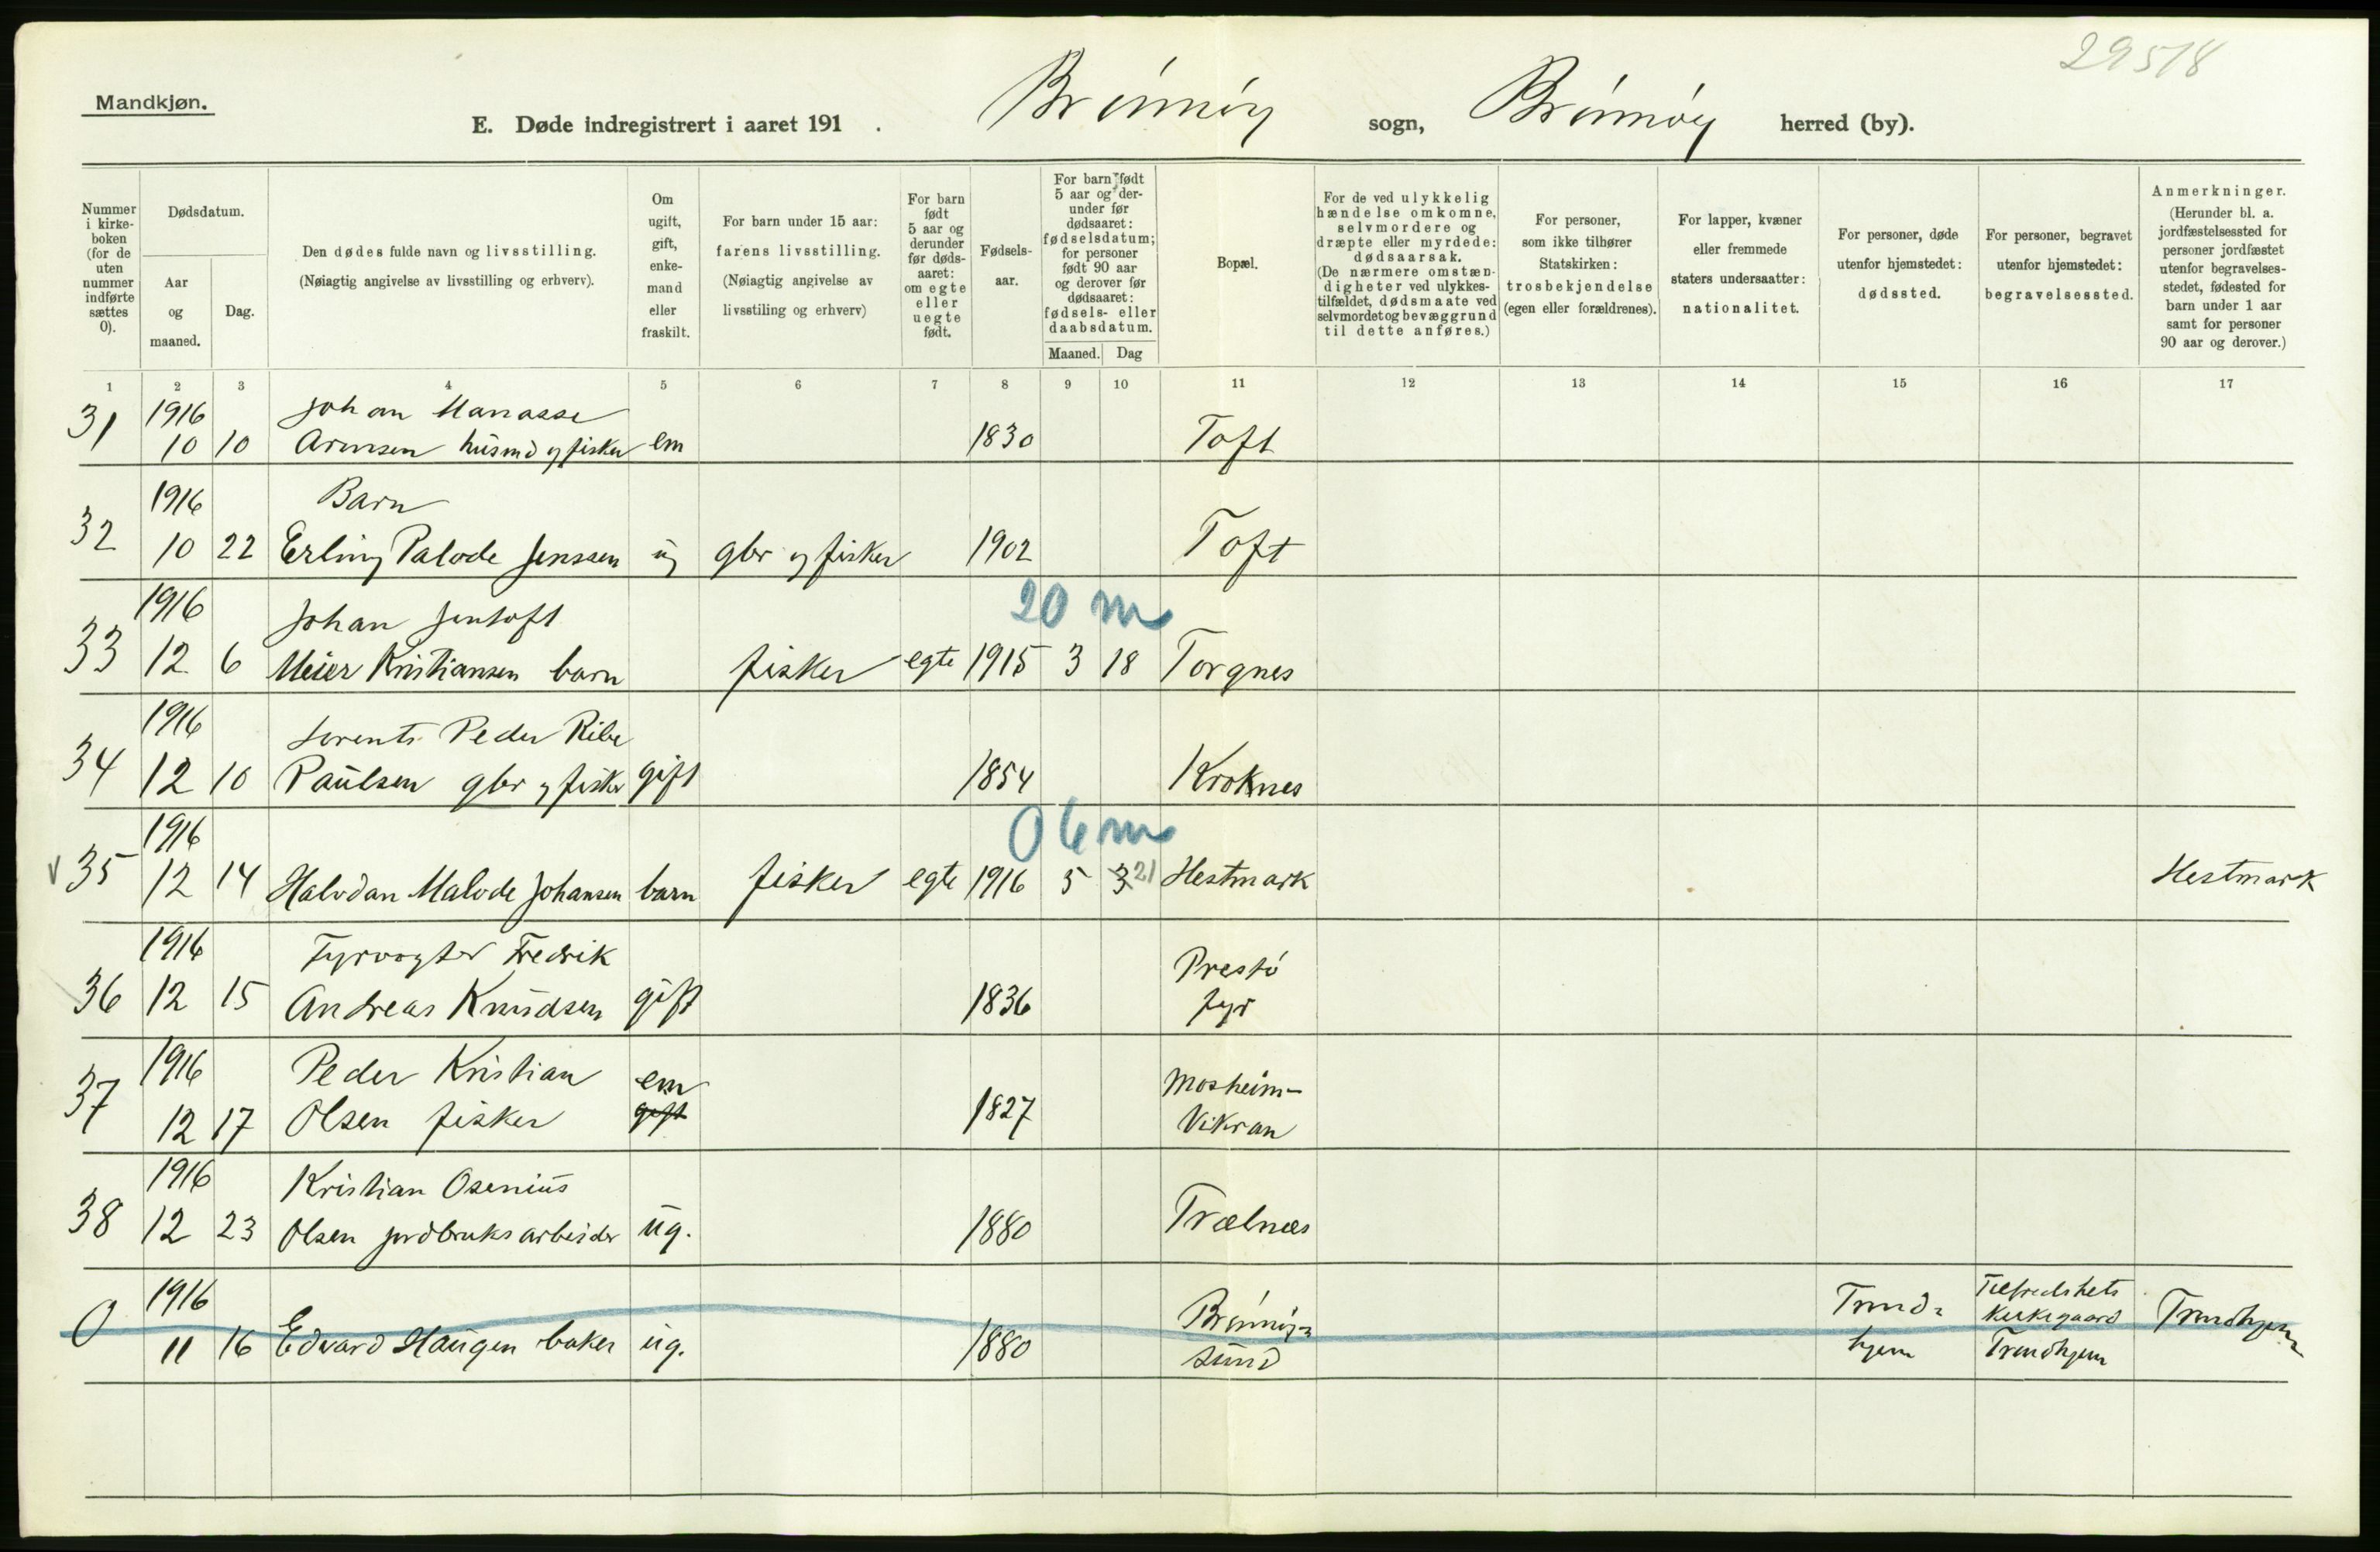 29518
Mandkjøn.
E. Døde indregistrert i aaret 191 . Brønnøy sogn, Brønnøy herred (by).
Nummer i kirke-boken (for de uten nummer indførte sættes 0).
Dødsdatum.
Aar og maaned.
Dag.
Den dødes fulde navn og livsstilling.
(Nøiagtig angivelse av livsstilling og erhverv).
Om ugift, gift, enke-mand eller fraskilt.
For barn under 15 aar:
farens livsstilling.
(Nøiagtig angivelse av livsstiling og erhverv)
For barn født 5 aar og derunder før døds-aaret: om egte eller uegte født.
Fødsels-aar.
For barn født 5 aar og der-under før dødsaaret: fødselsdatum; for personer født 90 aar og derover før dødsaaret: fødsels- eller daabsdatum.
Maaned. Dag
Bopæl.
For de ved ulykkelig hændelse omkomne, selvmordere og dræpte eller myrdede: dødsaarsak.
(De nærmere omstæn-digheter ved ulykkes-tilfældet, dødsmaate ved selvmordet og bevæggrund til dette anføres.)
For personer, som ikke tilhører Statskirken: trosbekjendelse (egen eller forældrenes).
For lapper, kvæner eller fremmede staters undersaatter: nationalitet.
For personer, døde utenfor hjemstedet: dødssted.
For personer, begravet utenfor hjemstedet: begravelsessted.
Anmerkninger.
(Herunder bl. a. jordfæstelsessted for personer jordfæstet utenfor begravelses-stedet, fødested for barn under 1 aar samt for personer 90 aar og derover.)
1 2 3 4 5 6 7 8 9 10 11 12 13 14 15 16 17
1916 Johan Manasse
31 10 10 Arntsen husmd og fisker em 1830 Toft
1916 Barn
32 10 22 Erling Palode Jenssen ug gbr og fisker 1902 Toft
20 m
1916 Johan Jentoft
33 12 6 Meier Kristiansen barn fisker egte 1915 3 18 Torgnes
1916 Lorents Peder Ribe
34 12 10 Paulsen gbr og fisker gift 1854 Kroknes
06 m
1916
v 35 12 14 Halvdan Malvde Johansen barn fisker egte 1916 5 3 21 Hestmark Hestmark
1916 Fyrvogter Fredrik Prestø
36 12 15 Andreas Knudsen gift 1836 fyr
1916 Peder Kristian em Mosheim-
37 12 17 Olsen fisker gift 1827 Vikran
1916 Kristian Osenius
38 12 23 Olsen jordbruksarbeider ug. 1880 Trælnes
1916 Brønnøy- Trond- Tilfredshets Kirkegaard Trondhjem
0 11 16 Edvard Haugen baker ug. 1880 sund hjem Trondhjem